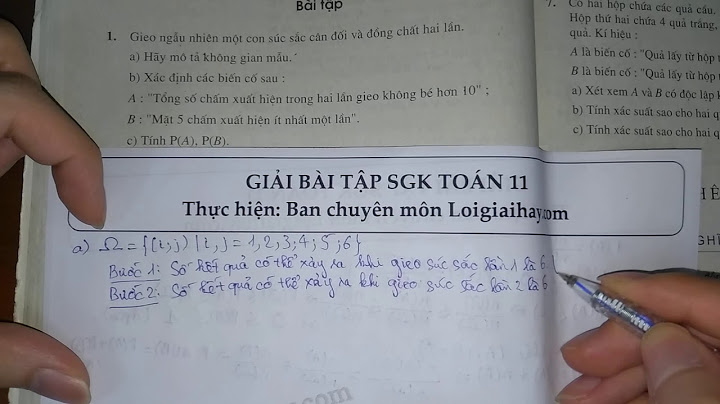 Bài tập
1. Gieo ngẫu nhiên một con súc sắc cân đối và đồng chất hai lần.
a) Hãy mô tả không gian mẫu.
b) Xác định các biến cố sau :
A : "Tổng số chấm xuất hiện trong hai lần gieo không bé hơn 10" ;
B : "Mặt 5 chấm xuất hiện ít nhất một lần".
c) Tính P(A), P(B).
7. Có hai hộp chứa các quả cầu.
Hộp thứ hai chứa 4 quả trắng,
quả. Kí hiệu :
A là biến cố : "Quả lấy từ hộp
B là biến cố : "Quả lấy từ hộp
a) Xét xem A và B có độc lập
b) Tính xác suất sao cho hai q
c) Tính xác suất sao cho hai q
GIẢI BÀI TẬP SGK TOÁN 11
Thực hiện: Ban chuyên môn Loigiaihay.com
a) Ω = {(i,j) | i,j = 1,2,3;4;5;6}
Bước 1: Số kết quả có thể xảy ra khi gieo súc sắc lần 1 là 6
Bước 2: Số kết quả có thể xảy ra khi gieo súc sắc lần 2 là 6